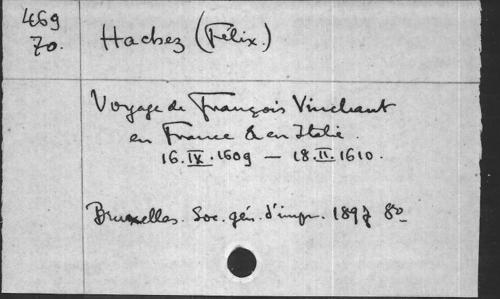 469
70.
Hachez (Félix.)
Voyage de François Vinchant
en France & en Italie.
16.IX.1609 — 18.II.1610.
Bruxelles. Soc. gén. d'impr. 1897 8º